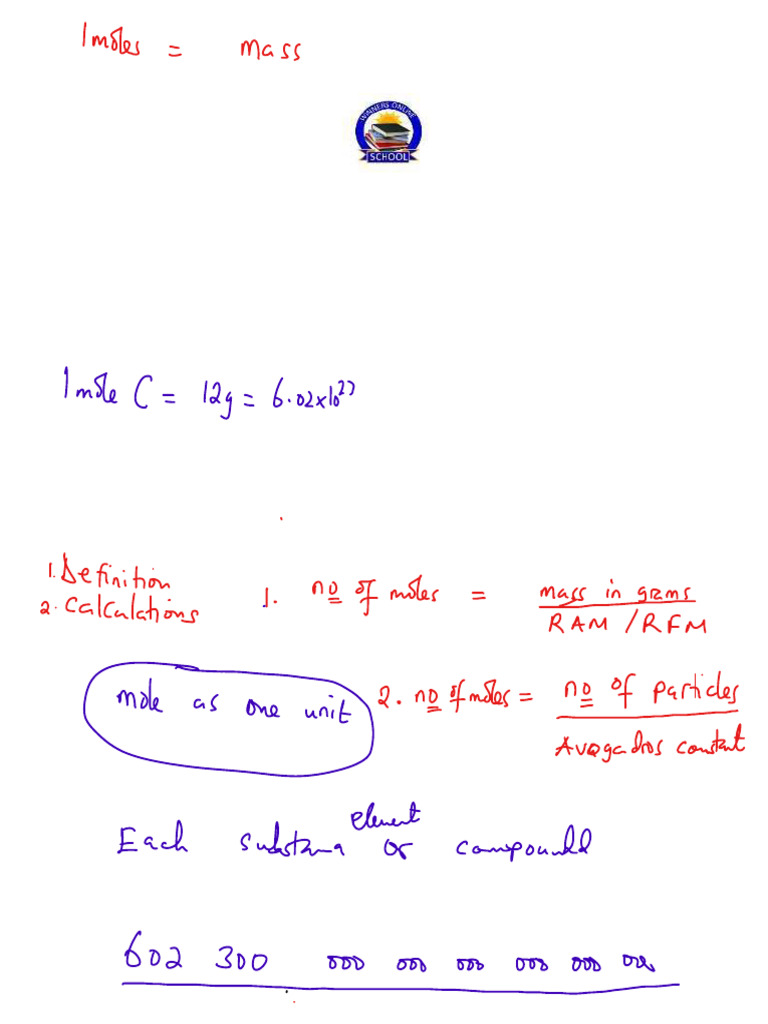 1 moles = mass
WINNERS ONLINE
SCHOOL
1 mole C = 12g = 6.02x10²³
1. Definition
2. Calculations
1. no of moles = mass in grams
RAM / RFM
mole as one unit
2. no of moles = no of particles
Avogadros constant
element
Each substance or compound
602 300 000 000 000 000 000 000